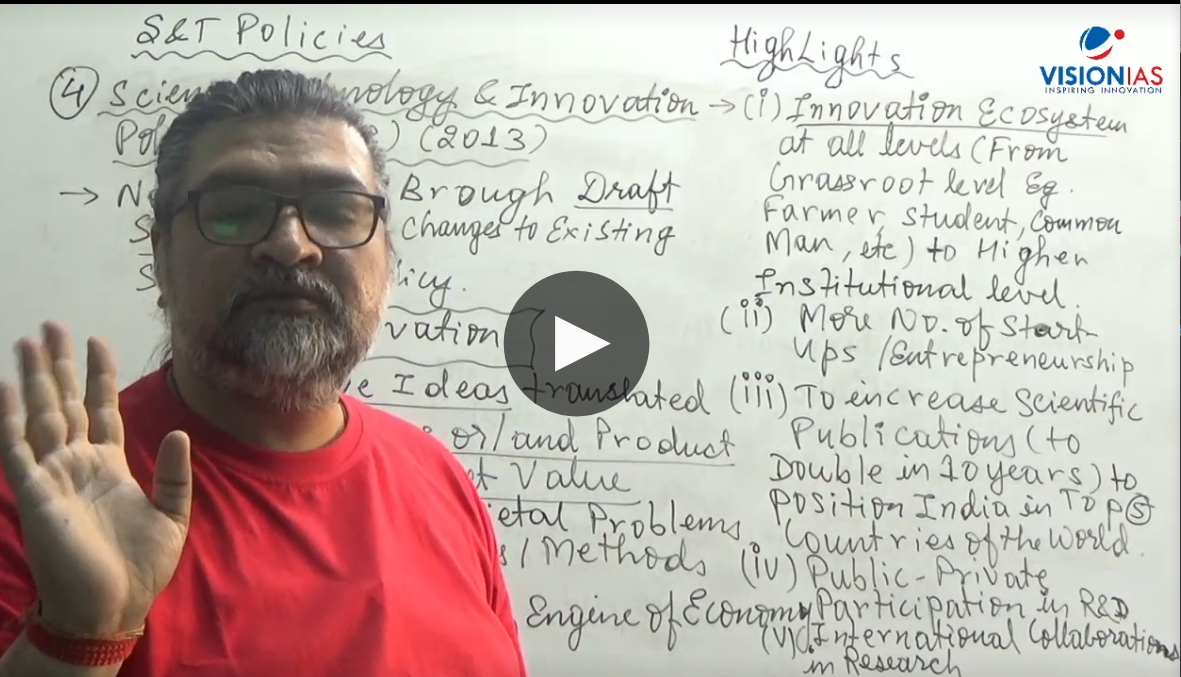 S&T Policies
④ Scien nology & Innovation →
Pol ) (2013)
→ N Brough Draft
S changes to Existing
S licy.
vation
e Ideas translated
or/and Product
et Value
ietal Problems
s/Methods
Engine of Economy
HighLights
VISIONIAS
INSPIRING INNOVATION
(i) Innovation Ecosystem
at all levels (From
Grassroot level Eg.
Farmer, Student, Common
Man, etc) to Higher
Institutional level.
(ii) More No. of Start-
Ups /Entrepreneurship
(iii) To increase Scientific
Publications (to
Double in 10 years) to
position India in Top ⑤
Countries of the World.
(iv) Public-Private
Participation in R&D
(v) International Collaborations
in Research